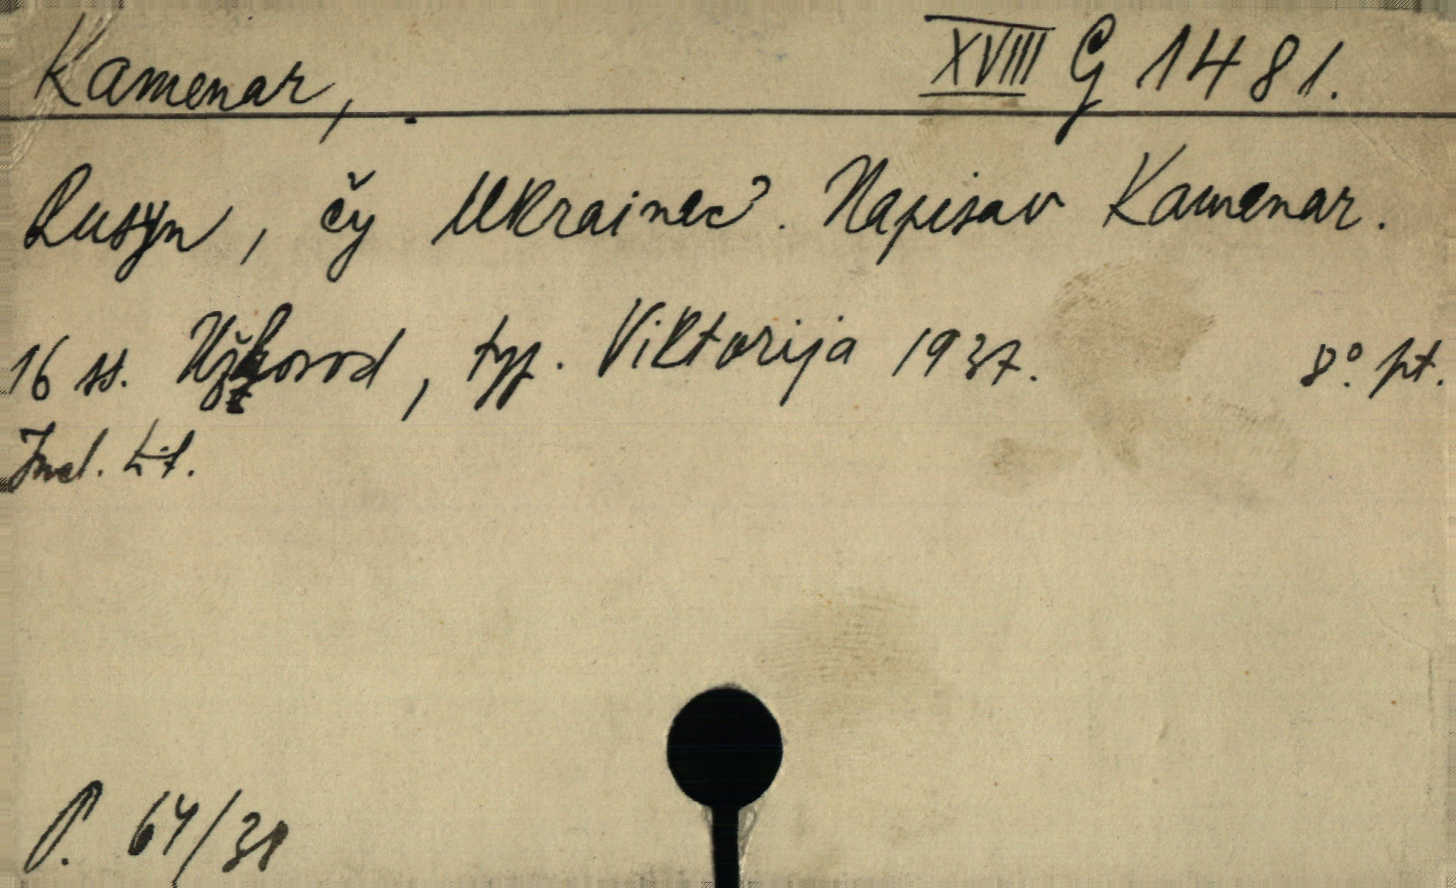 Kamenar, XVIII G 1481.
Rusyn, čy Ukrainec? Napisav Kamenar.
16 ss. Užhorod, typ. Viktorija 1937. 8°. pt.
P. 64/38